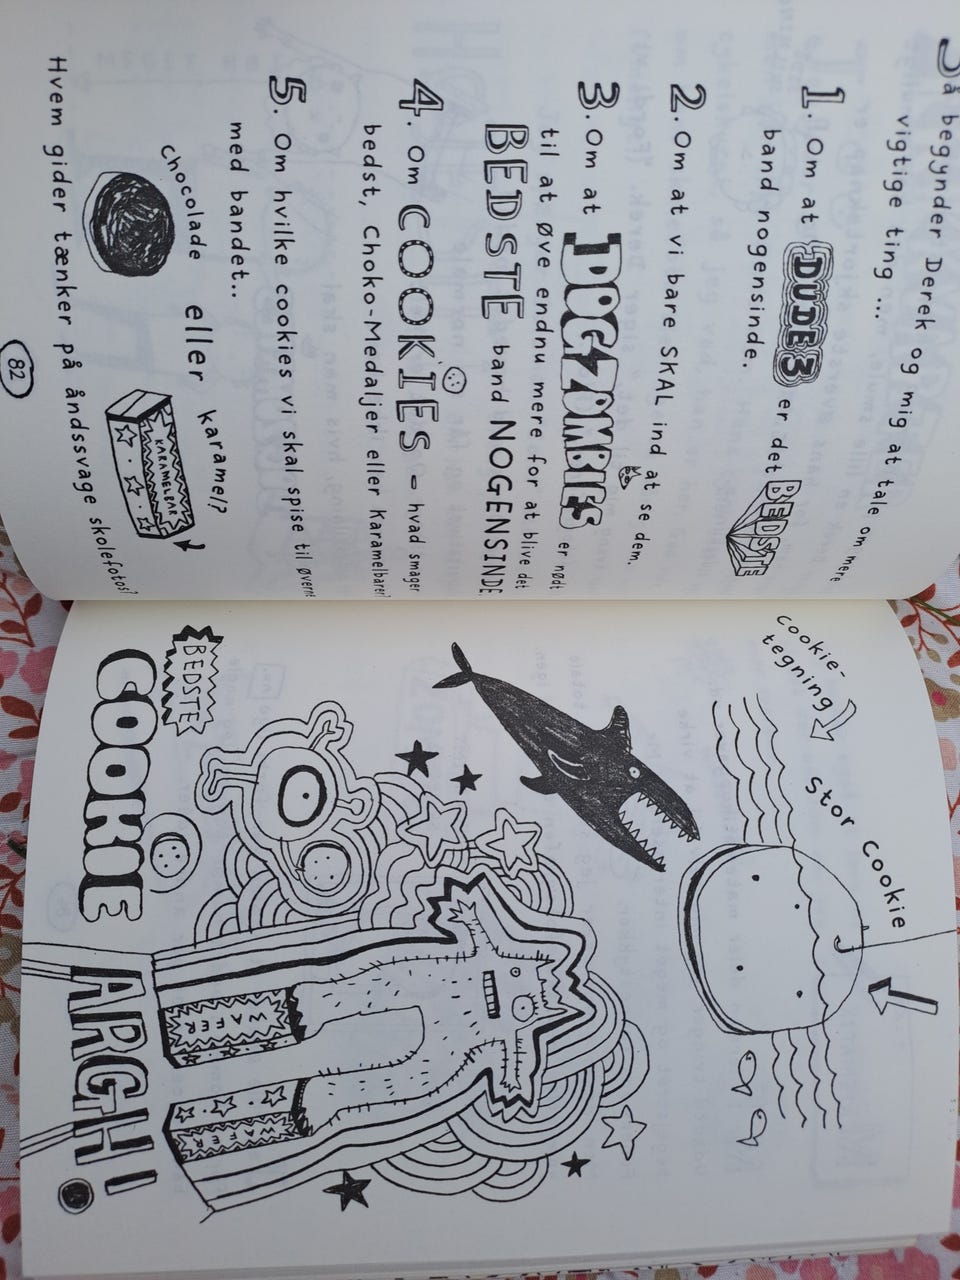 Så begynder Derek og mig at tale om mere
vigtige ting ...
1. Om at DUDE3 er det BEDSTE
band nogensinde.
2. Om at vi bare SKAL ind at se dem.
3. Om at DOGZOMBIES er nødt
til at øve endnu mere for at blive det
BEDSTE band NOGENSINDE.
4. Om COOKIES - hvad smager
bedst, Choko-Medaljer eller Karamelbarer?
5. Om hvilke cookies vi skal spise til øverne
med bandet..
Chocolade eller karamel?
KARAMELBAR
Hvem gider tænker på åndssvage skolefotos?
82
Cookie-
tegning
Stor Cookie
BEDSTE
COOKIE
WAFER
WAFER
ARGH!